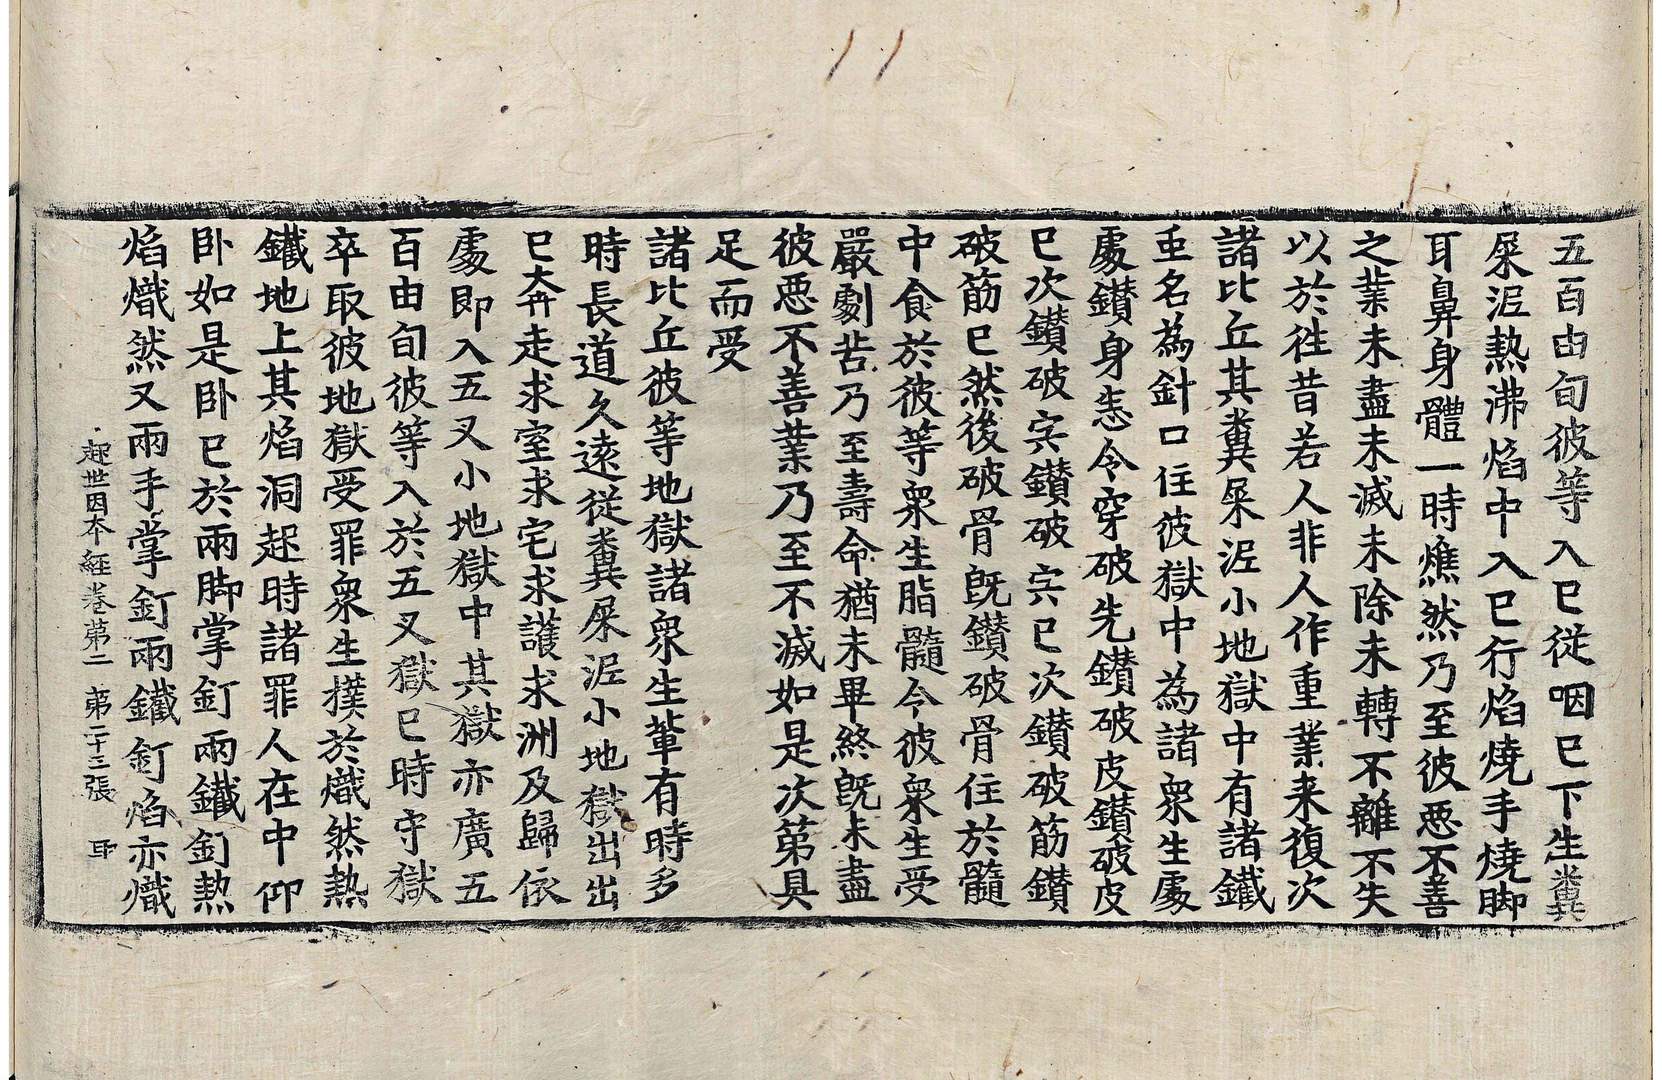 五百由旬彼等入已從咽已下生糞
屎泥熱沸焰中入已行焰燒手燒脚
耳鼻身體一時燋然乃至彼惡不善
之業未盡未滅未除未轉不離不失
以於徃昔若人非人作重業来復次
諸比丘其糞屎泥小地獄中有諸鐵
䖝名為針口住彼獄中為諸衆生處
處鑚身悉令穿破先鑚破皮鑚破皮
已次鑚破宍鑚破宍已次鑚破筋鑚
破筋已然後破骨旣鑚破骨住於髓
中食於彼等衆生脂髓令彼衆生受
嚴劇苦乃至壽命猶未畢終旣未盡
彼惡不善業乃至不滅如是次第具
足而受
諸比丘彼等地獄諸衆生輩有時多
時長道久遠從糞屎泥小地獄出出
已奔走求室求宅求護求洲及歸依
處即入五叉小地獄中其獄亦廣五
百由旬彼等入於五叉獄已時守獄
卒取彼地獄受罪衆生撲於熾然熱
鐵地上其焰洞起時諸罪人在中仰
卧如是卧已於兩脚掌釘兩鐵釘熱
焰熾然又兩手掌釘兩鐵釘焰亦熾
起世因本經卷第二 第二十三張